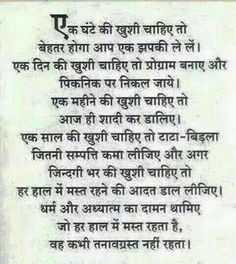 एक घंटे की खुशी चाहिए तो
बेहतर होगा आप एक झपकी ले लें।
एक दिन की खुशी चाहिए तो प्रोग्राम बनाए और
पिकनिक पर निकल जाये।
एक महीने की खुशी चाहिए तो
आज ही शादी कर डालिए।
एक साल की खुशी चाहिए तो टाटा-बिड़ला
जितनी सम्पत्ति कमा लीजिए और अगर
जिन्दगी भर की खुशी चाहिए तो
हर हाल में मस्त रहने की आदत डाल लीजिए।
धर्म और अध्यात्म का दामन थामिए
जो हर हाल में मस्त रहता है,
वह कभी तनावग्रस्त नहीं रहता।